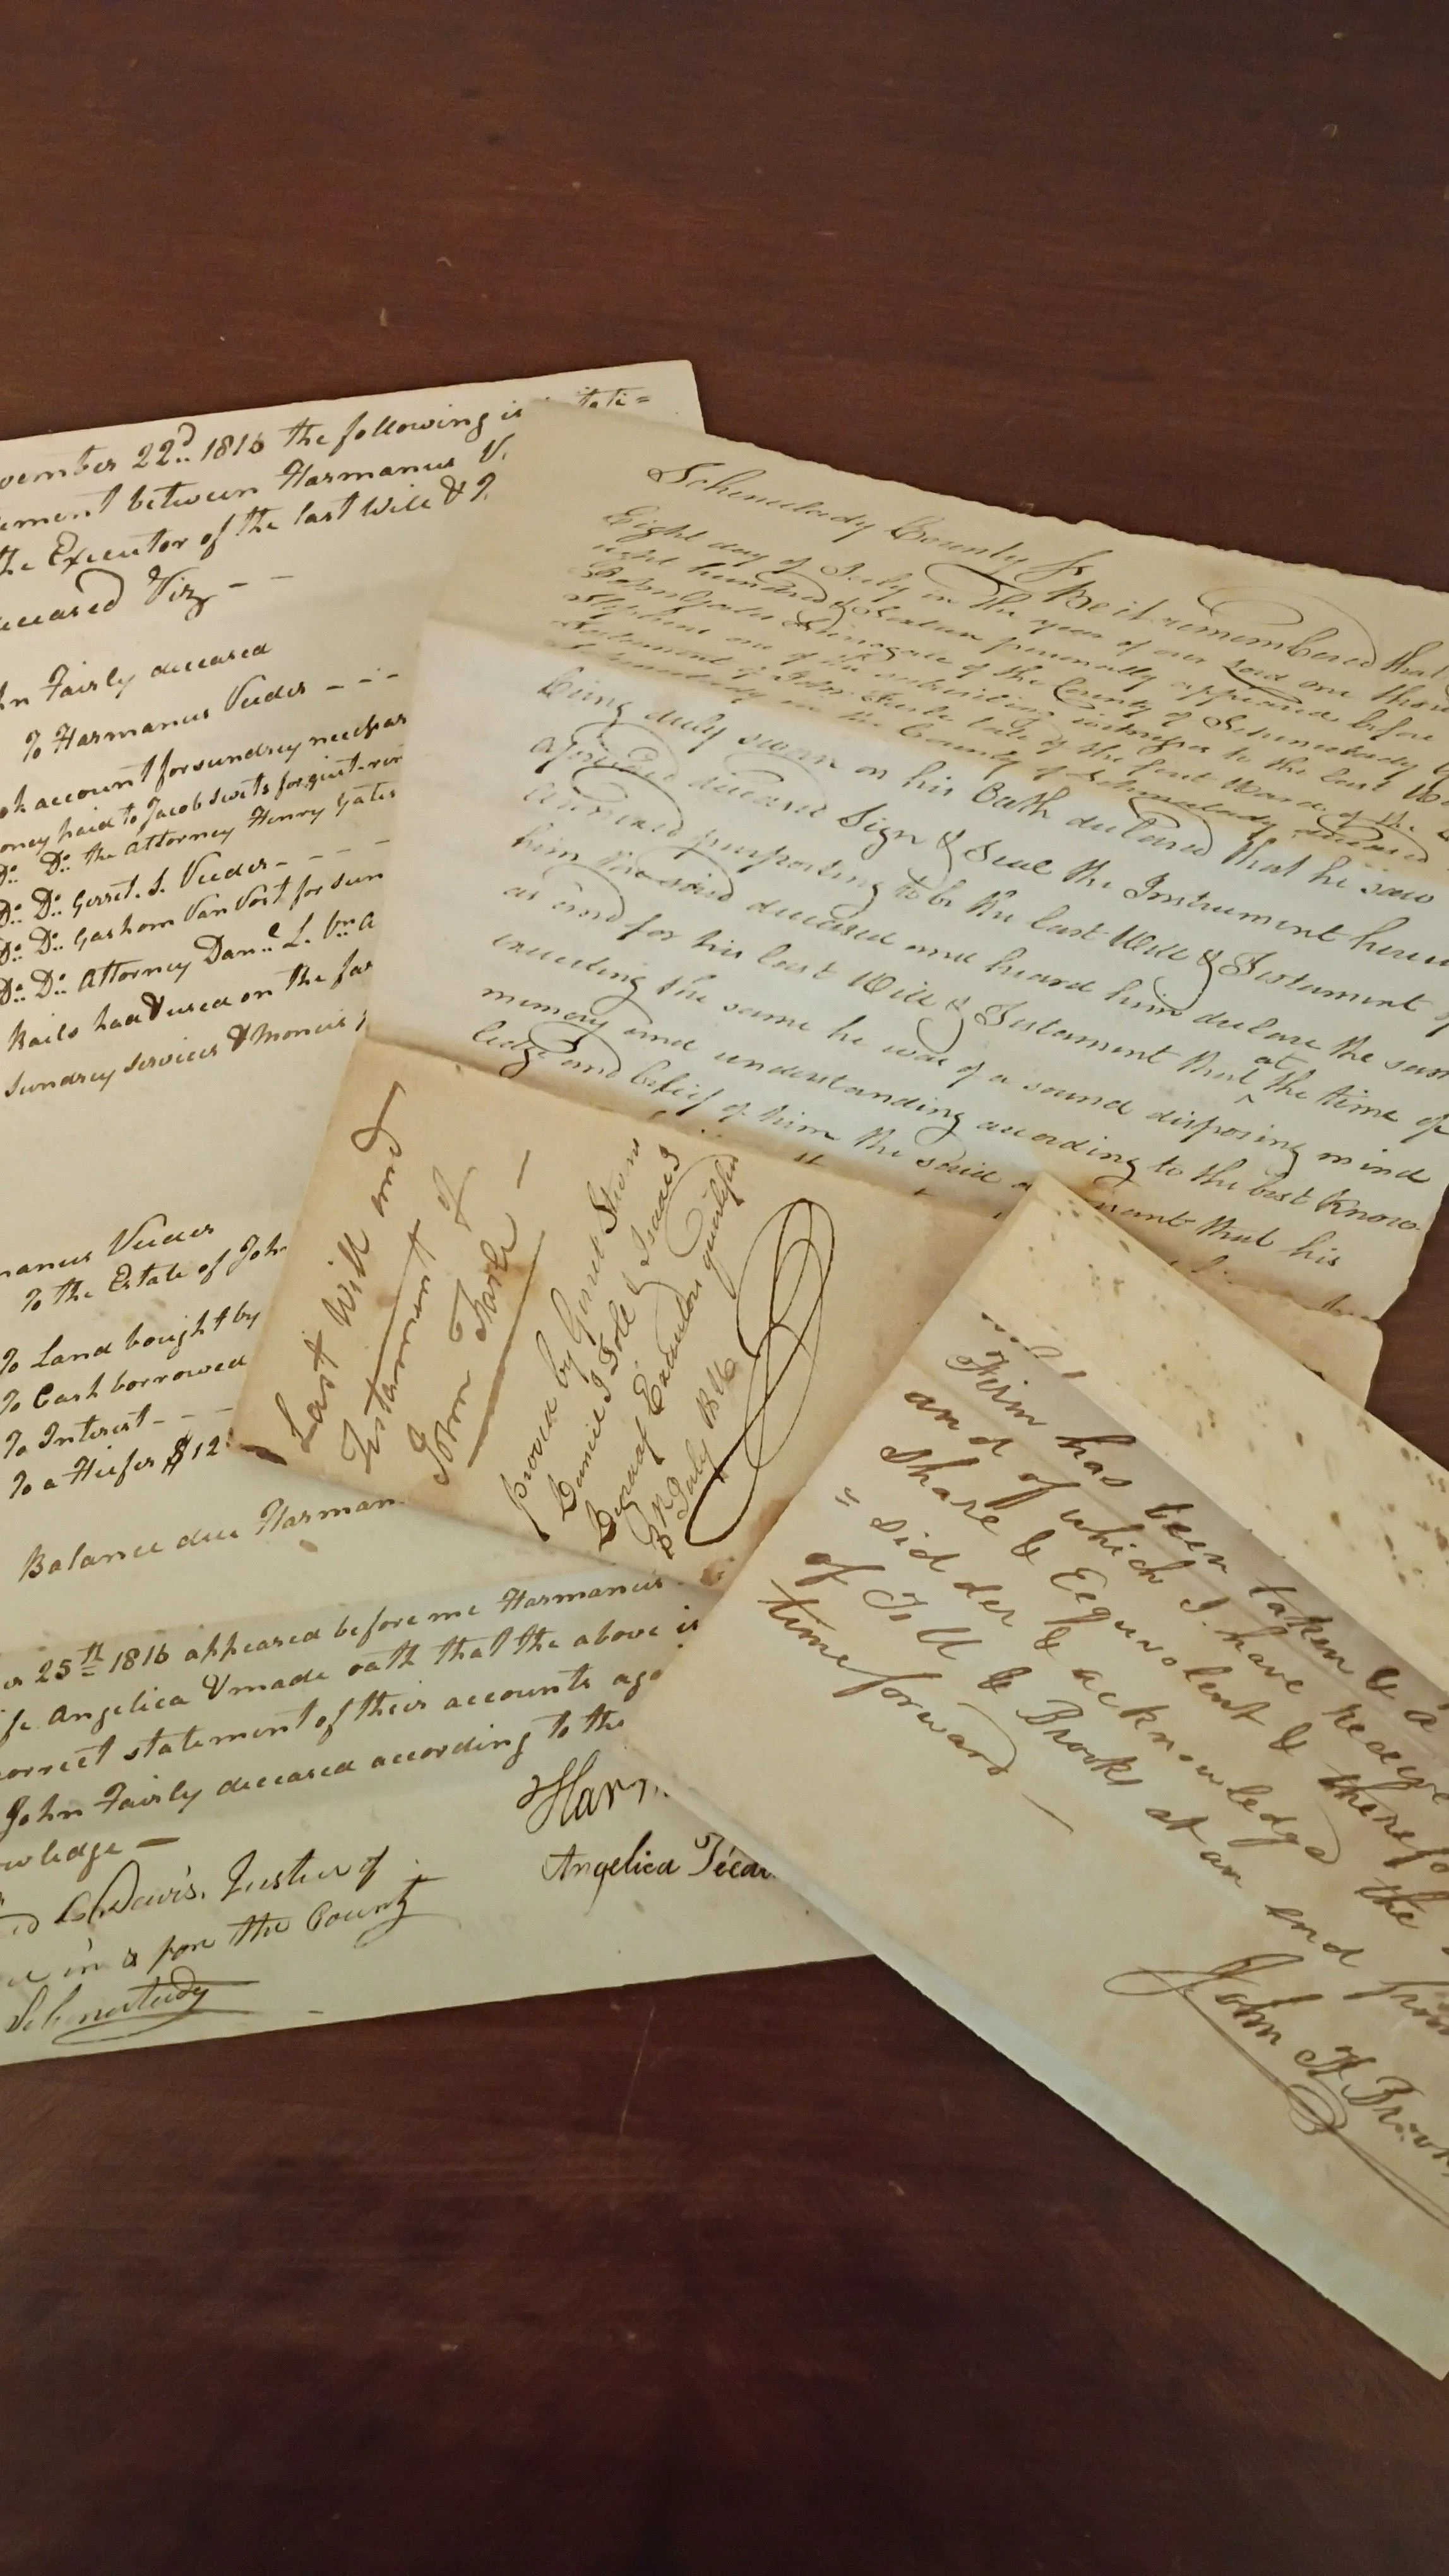 vember 22d 1816 the following is
ement between Harmanus V.
the Executor of the last Will & T
eceased Viz - -
hn Fairly deceased
To Harmanus Veeder - - -
ok account for sundrey necessar
oney paid to Jacob Swits for
Do Do the Attorney Henry Yates
Do Do Gerret. S. Veeder - - - -
Do Do Gashom Van Vost for sun
Do Do Attorney Danel L. Vn A
Rails had & used on the far
Sundrey Services & Monies
manus Veeder
To the Estate of Joh
To Land bought by
To Cash borrowed
To Interest - - -
To a Heifer $12
Balance due Harman
er 25th 1816 appeared before me Harmanus
fe Angelica & made oath that the above is
correct statement of their accounts aga
John Fairly deceased according to the
owledge —
Harm
Angelica
Davis. Justice of
in & for the County
Schenectady
Schenectady County Ss Be it remembered that
Eight day of July in the year of our Lord one thous
eight hundred & Sixteen personally appeared before
Surrogate of the County of Schenectady
Stephens one of the subscribing witnesses to the last W
Testament of John Farle late of the first Ward of the
Schenectady in the County of Schenectady deceased
being duly sworn on his Oath declared that he saw
aforesaid deceased Sign & Seal the Instrument hereu
annexed purporting to be the last Will & Testament of
him the said deceased and heard him declare the sam
as and for his last Will & Testament that at the time of
executing the same he was of a sound disposing mind
memory and understanding according to the best Know
ledge and belief of him the said
nant that his
Last Will and
Testament of
John Farle —
proved by Gerret Stevens
Daniel J Toll & Isaac I
Degraaf Executors qualified
8th July 1816
Firm has been taken & a
and of which I have receive
Share & Equivolent & therefo
" sid der & acknowledge the
of Till & Brooks at an end from
time forward —
John H Brook